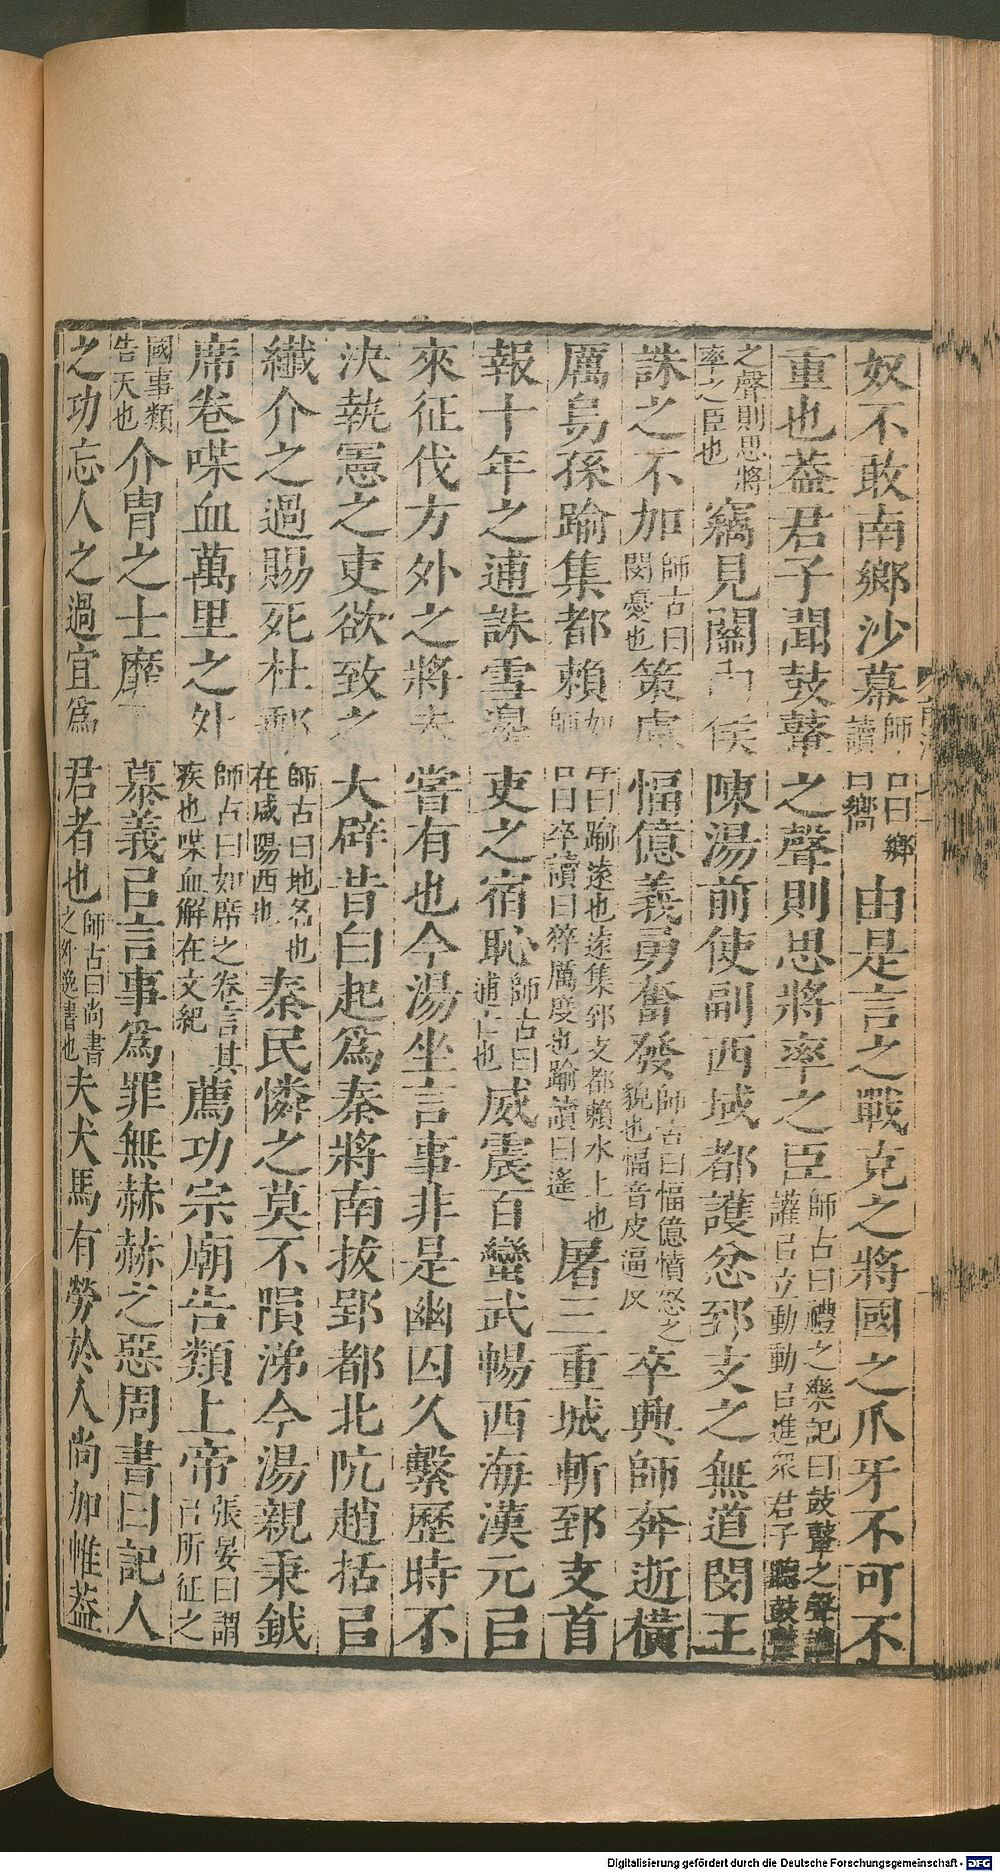 奴不敢南鄉沙幕師古曰鄉讀曰嚮由是言之戰克之將國之爪牙不可不
重也葢君子聞鼓鼙之聲則思將率之臣師古曰禮之樂記曰鼓鼙之聲讙讙㠯立動動㠯進衆君子聽鼓鼙
之聲則思將率之臣也竊見關內侯陳湯前使副西域都護忿郅支之無道閔王
誅之不加師古曰閔憂也策慮愊億義勇奮發師古曰愊億憤怒之貌也愊音皮逼反卒興師奔逝橫
厲烏孫踰集都賴如淳曰踰遠也遠集郅支都賴水上也師古曰卒讀曰猝厲度也踰讀曰遙屠三重城斬郅支首
報十年之逋誅雪邊吏之宿恥師古曰逋亡也威震百蠻武暢西海漢元㠯
來征伐方外之將未嘗有也今湯坐言事非是幽囚久繫歷時不
決執憲之吏欲致之大辟昔白起爲秦將南拔郢都北阬趙括㠯
纖介之過賜死杜郵師古曰地名也在咸陽西也秦民憐之莫不隕涕今湯親秉鉞
席卷喋血萬里之外師古曰如席之卷言其疾也喋血解在文紀薦功宗廟告類上帝張晏曰謂㠯所征之
國事類告天也介冑之士靡不慕義㠯言事爲罪無赫赫之惡周書曰記人
之功忘人之過宜爲君者也師古曰尚書之外逸書也夫犬馬有勞於人尚加帷葢
Digitalisierung gefördert durch die Deutsche Forschungsgemeinschaft - DFG